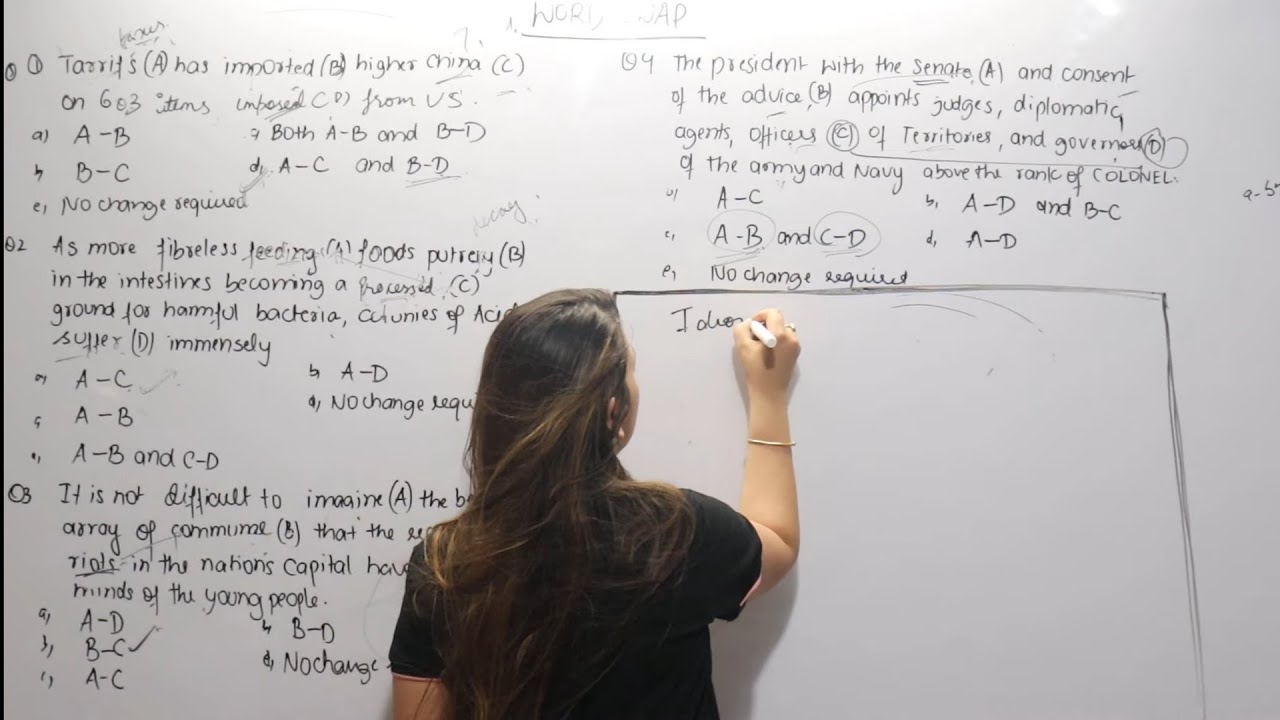 WORD SWAP
taxes
Q ① Tarrif's (A) has imported (B) higher China (C)
on 603 items imposed (D) from US.
a) A-B
c) Both A-B and B-D
b, B-C
d, A-C and B-D
e, No change required
decay
Q2 As more fibreless feeding (A) foods putrefy (B)
in the intestines becoming a processed (C)
ground for harmful bacteria, colunies of Acid
suffer (D) immensely
a) A-C
b, A-D
c, A-B
d, No change requi
e, A-B and C-D
Q3 It is not difficult to imagine (A) the
array of commume (B) that the
riots in the nation's capital have
minds of the young people.
a, A-D
b, B-D
b, B-C
d, No change
c, A-C
Q4 The president with the Senate (A) and consent
of the advice (B) appoints judges, diplomatic
agents, officers (C) of Territories, and governers (D)
of the army and Navy above the rank of COLONEL.
a) A-C
b, A-D and B-C
c, A-B and C-D
d, A-D
e, No change required
Idio